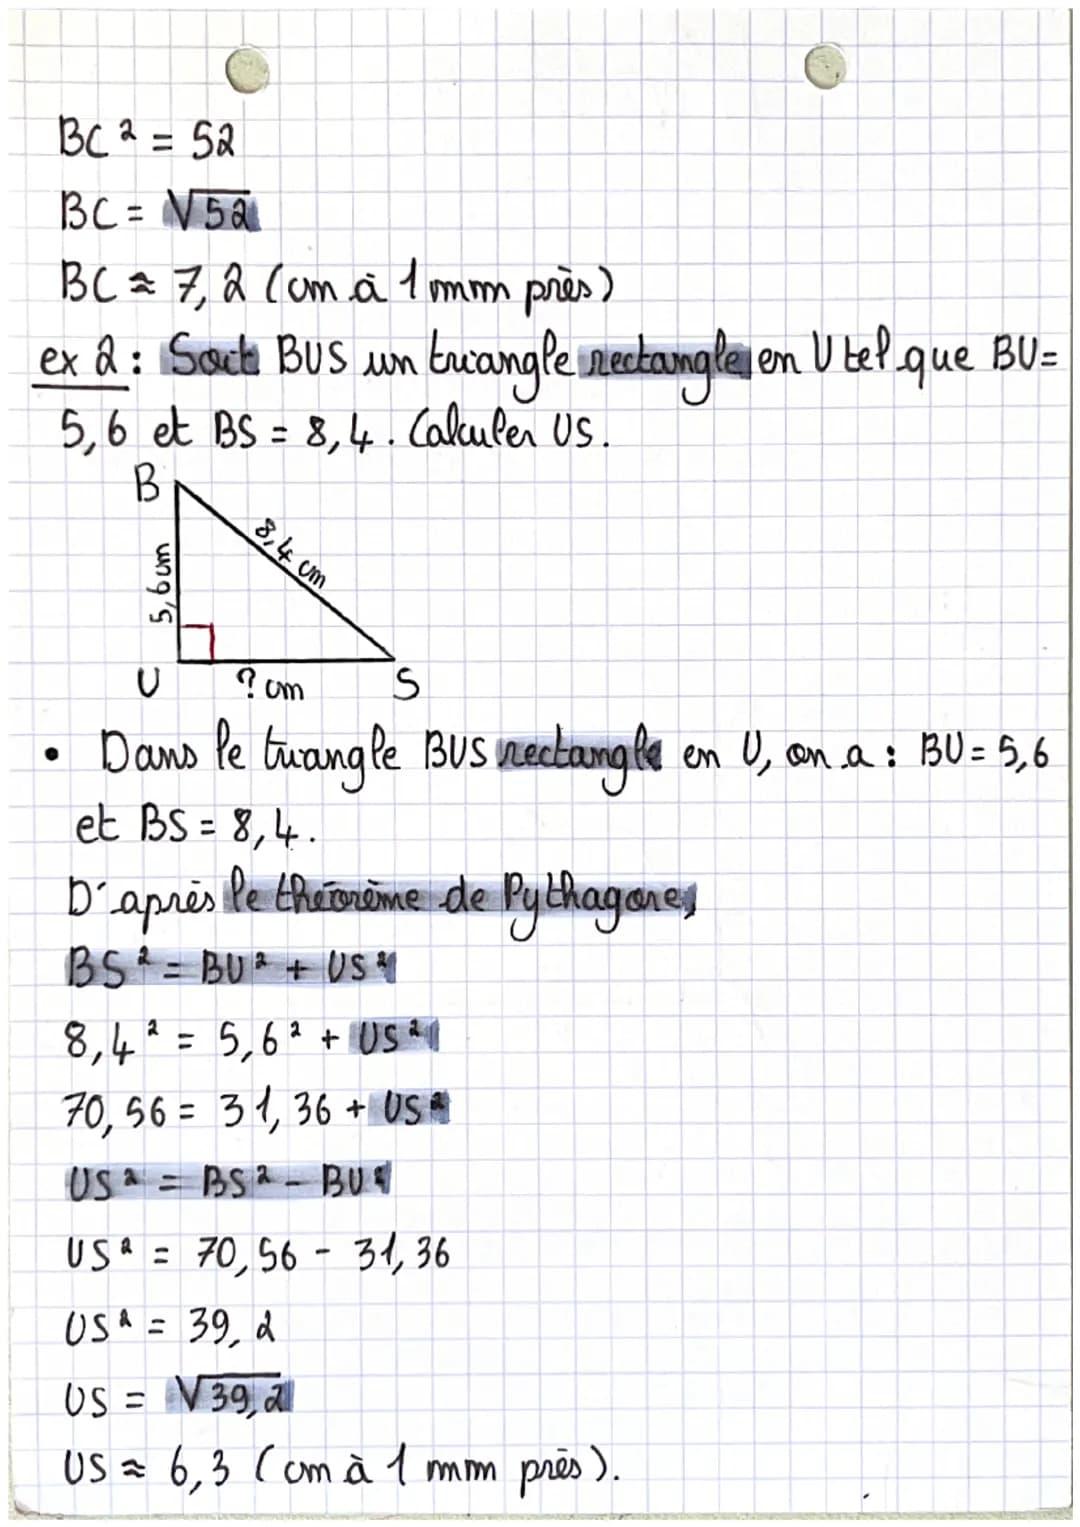 BC² = 52
BC = √52
BC ≈ 7,2 (cm à 1 mm près)
ex 2 : Soit BUS un triangle rectangle en U tel que BU =
5,6 et BS = 8,4. Calculer US.
B
8,4 cm
5,6 cm
U ? cm S
• Dans le triangle BUS rectangle en U, on a : BU = 5,6
et BS = 8,4.
D'après le théorème de Pythagore,
BS² = BU² + US²
8,4² = 5,6² + US²
70,56 = 31,36 + US²
US² = BS² - BU²
US² = 70,56 - 31,36
US² = 39,2
US = √39,2
US ≈ 6,3 (cm à 1 mm près).